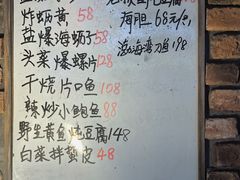 炸蛎黄 58
海胆 68元/
盐爆海蛎子 58
渤海湾刀鱼 198
头菜爆螺片 128
干烧片口鱼 108
辣炒小鲍鱼 88
野生黄鱼炖豆腐 148
白菜拌蜇皮 48